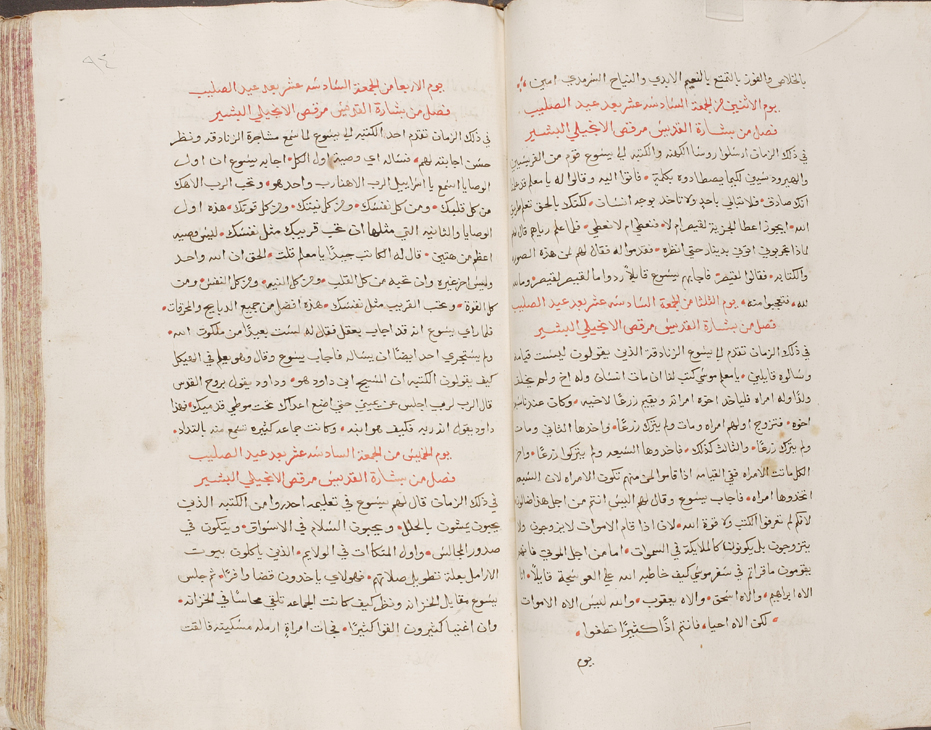 بالخلاص والفوز بالتمتع بالنعيم الابدي والنياح السرمدي امين
يوم الاثنين من الجمعة السادسة عشر بعد عيد الصليب
فصل من بشارة القديس مرقص الانجيلي البشير
في ذلك الزمان ارسلوا روسا الكهنه والكتبه الي يسوع قوم من الفريسيين
والهيرودسيين لكيما يصطادوه بكلمة فاتوا اليه وقالوا له يا معلم قد علمنا
انك صادق فلا تبالي باحد ولا تاخد بوجه انسان لكنك بالحق تعلم طريق
الله ايجوز اعطا الجزية لقيصر ام لا فنعطي ام لا نعطي فلما علم رياهم قال لهم
لماذا تجربوني اتوني بدينار حتي انظره فقدموا له فقال لهم لمن هذه الصوره
والكتابه فقالوا لقيصر فاجابهم يسوع قايلا ردوا ما لقيصر لقيصر وما لله
لله فتعجبوا منه يوم الثلثا من الجمعة السادسه عشر بعد عيد الصليب
فصل من بشارة القديس مرقص الانجيلي البشير
في ذلك الزمان تقدم الي يسوع الزنادقة الذين يقولون ليست قيامه
وسالوه قايلين يا معلم موسي كتب لنا ان مات انسان وله اخ ولم يخلف
ولدا وله امراه فلياخد اخوه امراته ويقيم زرعا لاخيه وكان عندنا سبعة
اخوه فتزوج اولهم امراه ومات ولم يترك زرعا واخدها الثاني ومات
ولم يترك زرعا والثالث كذلك فاخدوها السبعه ولم يتركوا زرعا واخر
الكل ماتت الامراه ففي القيامه اذا قاموا لمن منهم تكون الامراه لان السبعه
اتخدوها امراه فاجاب يسوع وقال لهم اليس انتم من اجل هذا ضالون
لانكم لم تعرفوا الكتب ولا قوة الله لان اذا قام الاموات لا يزوجون ولا
يتزوجون بل يكونون كالملايكة في السموات اما من اجل الموتي فانهم
يقومون ما قراتم في سفر موسي كيف خاطبه الله علي العوسجة قايلا انا
الاه ابراهيم والاه اسحق والاه يعقوب والله ليس الاه الاموات
لكن الاه احيا فانتم اذا كثيرا تطغوا
يوم
٩٤
يوم الاربعا من الجمعة السادسه عشر بعد عيد الصليب
فصل من بشارة القديس مرقص الانجيلي البشير
في ذلك الزمان تقدم احد الكتبه الي يسوع لما سمع مشاجرة الزنادقه ونظر
حسن اجابته لهم فساله اي وصية اول الكل اجابه يسوع ان اول
الوصايا اسمع يا اسراييل الرب الاهنا رب واحد هو وتحب الرب الاهك
من كل قلبك ومن كل نفسك ومن كل نيتك ومن كل قوتك هذه اول
الوصايا والثانيه التي مثلها ان تحب قريبك مثل نفسك ليس وصيه
اعظم من هتين قال له الكاتب جيدا يا معلم قلت الحق ان الله واحد
وليس اخر غيره وان تحبه من كل القلب ومن كل النيه ومن كل النفس ومن
كل القوة وتحب القريب مثل نفسك هذه افضل من جميع الدبايح والمحرقات
فلما راي يسوع انه قد اجاب بعقل فقال له لست بعيدا من ملكوت الله
ولم يستجري احد ايضا ان يساله فاجاب يسوع وقال وهو يعلم في الهيكل
كيف يقولون الكتبه ان المسيح ابن داود هو وداود يقول بروح القدس
قال الرب لربي اجلس عن يميني حتي اضع اعداك تحت موطي قدميك فهذا
داود يقول انه ربه فكيف هو ابنه وكانت جماعه كثيره تسمع منه بالتلدد
يوم الخميس من الجمعة السادسه عشر بعد عيد الصليب
فصل من بشارة القديس مرقص الانجيلي البشير
في ذلك الزمان قال لهم يسوع في تعليمه احدروا من الكتبه الذين
يحبون يمشون بالحلل ويحبون السلام في الاسواق ويتكون في
صدور المجالس واول المتكات في الولايم الذين ياكلون بيوت
الارامل بعلة تطويل صلاتهم فهولاي ياخدون قضا وافرا ثم جلس
يسوع مقابل الخزانه ونظر كيف كانت الجماعه تلقي نحاسا في الخزانه
وان اغنيا كثيرون القوا كثيرا فجات امراة ارمله مسكينه فالقت